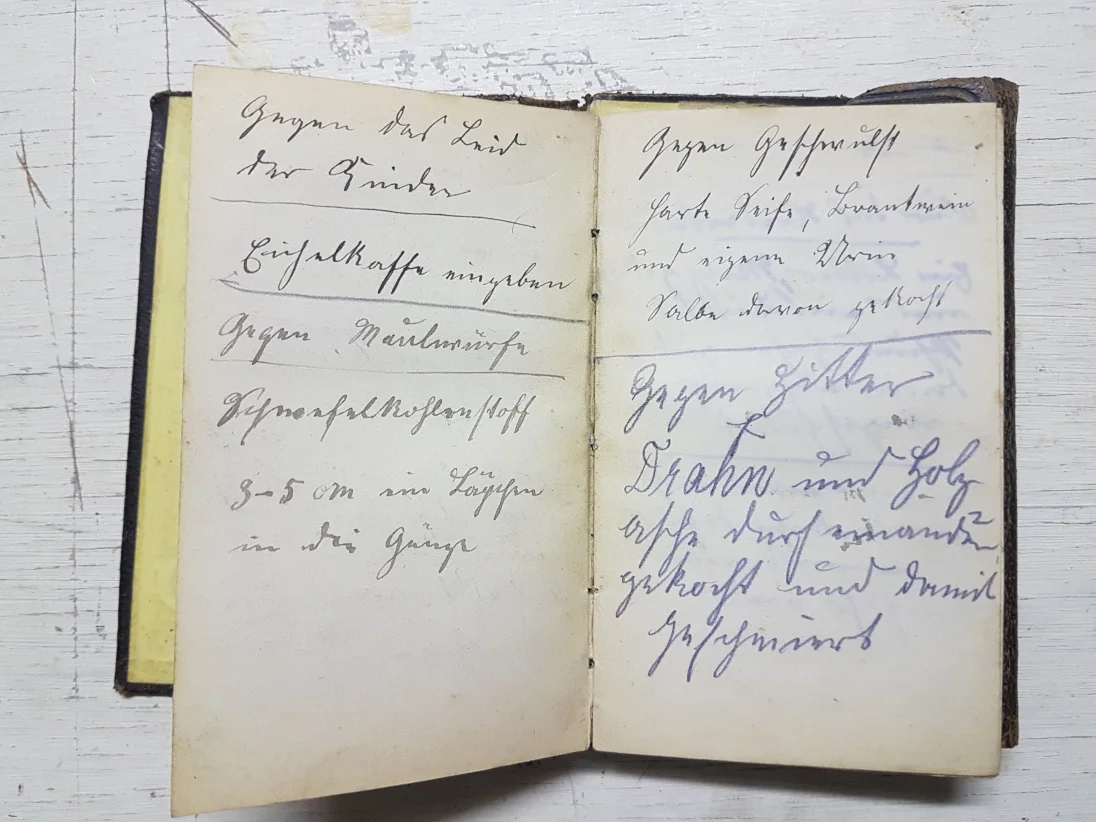 Gegen das Leid
der Kinder
Eichelkaffe eingeben
Gegen Maulwürfe
Schwefelkohlenstoff
3-5 cm ein Läppchen
in die Gänge
Gegen Geschwulst
harte Seife, Brantwein
und eigene Urin
Salbe davon gekocht
Gegen Zitter
und Holz
asche durcheinander
gekocht und damit
geschmiert